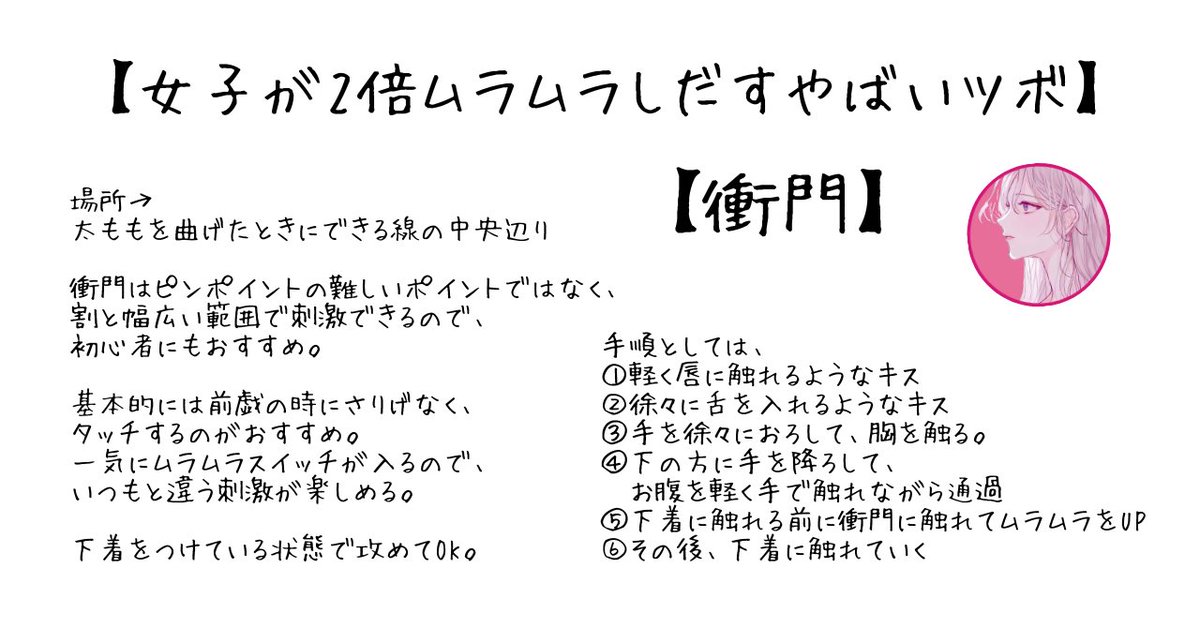 【女子が2倍ムラムラしだすやばいツボ】
【衝門】
場所→
太ももを曲げたときにできる線の中央辺り
衝門はピンポイントの難しいポイントではなく、
割と幅広い範囲で刺激できるので、
初心者にもおすすめ。
基本的には前戯の時にさりげなく、
タッチするのがおすすめ。
一気にムラムラスイッチが入るので、
いつもと違う刺激が楽しめる。
下着をつけている状態で攻めてOK。
手順としては、
①軽く唇に触れるようなキス
②徐々に舌を入れるようなキス
③手を徐々におろして、胸を触る。
④下の方に手を降ろして、
お腹を軽く手で触れながら通過
⑤下着に触れる前に衝門に触れてムラムラをUP
⑥その後、下着に触れていく